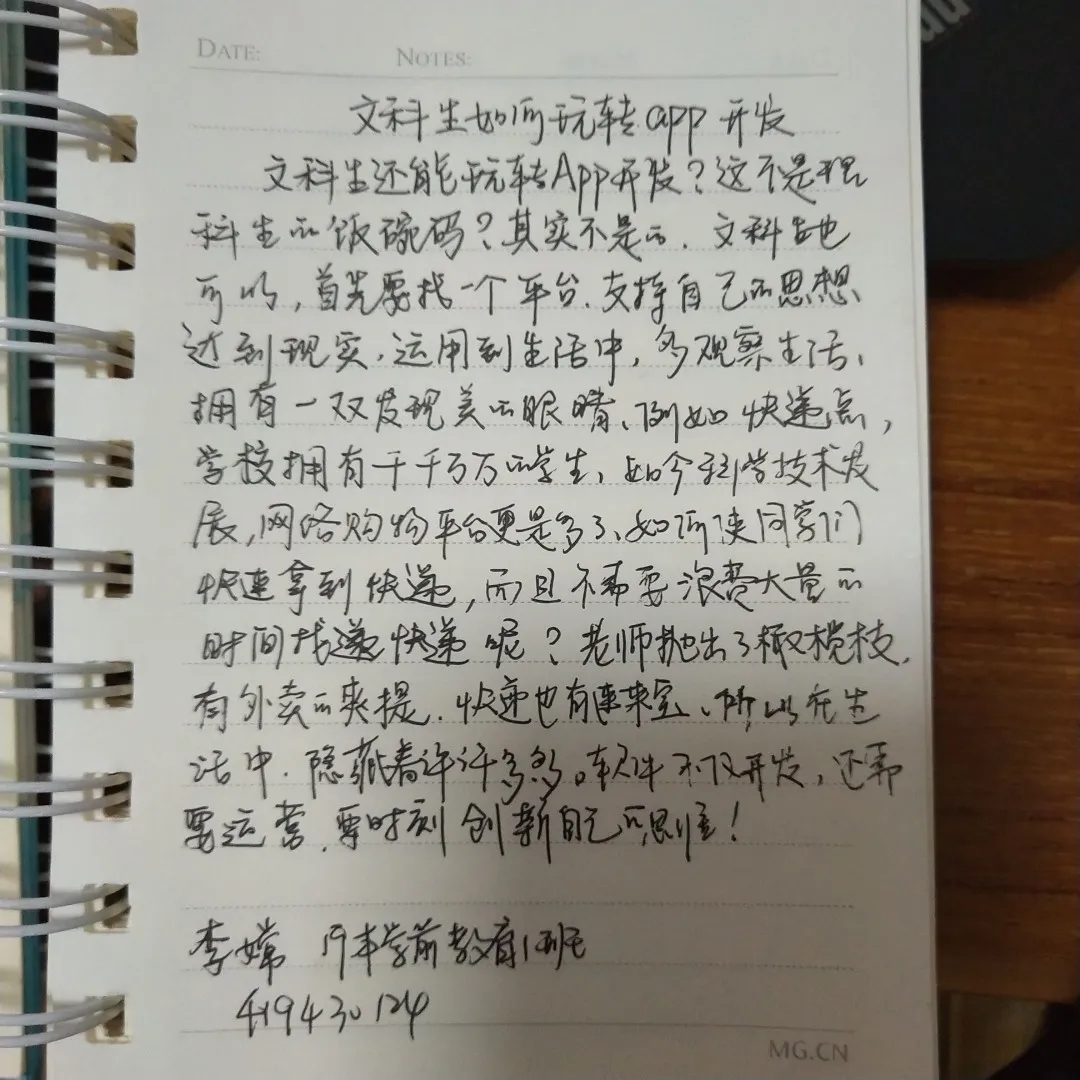 DATE: NOTES:
文科生如何玩转app开发
文科生还能玩转App开发？这不是理
科生的饭碗码？其实不是的，文科生也
可以，首先要找一个平台，支持自己的思想
达到现实，运用到生活中，多观察生活，
拥有一双发现美的眼睛、例如快递点，
学校拥有千千万万的学生，如今科学技术发
展，网络购物平台更是多了、如何使同学们
快速拿到快递，而且不需要浪费大量的
时间找递快递呢？老师抛出了橄榄枝，
有外卖的来提，快递也有速来宝、所以在生
活中，隐藏着许许多多。软件不仅开发，还需
要运营，要时刻创新自己的思维！
李嫦 19本学前教育1班
419430124
MG.CN